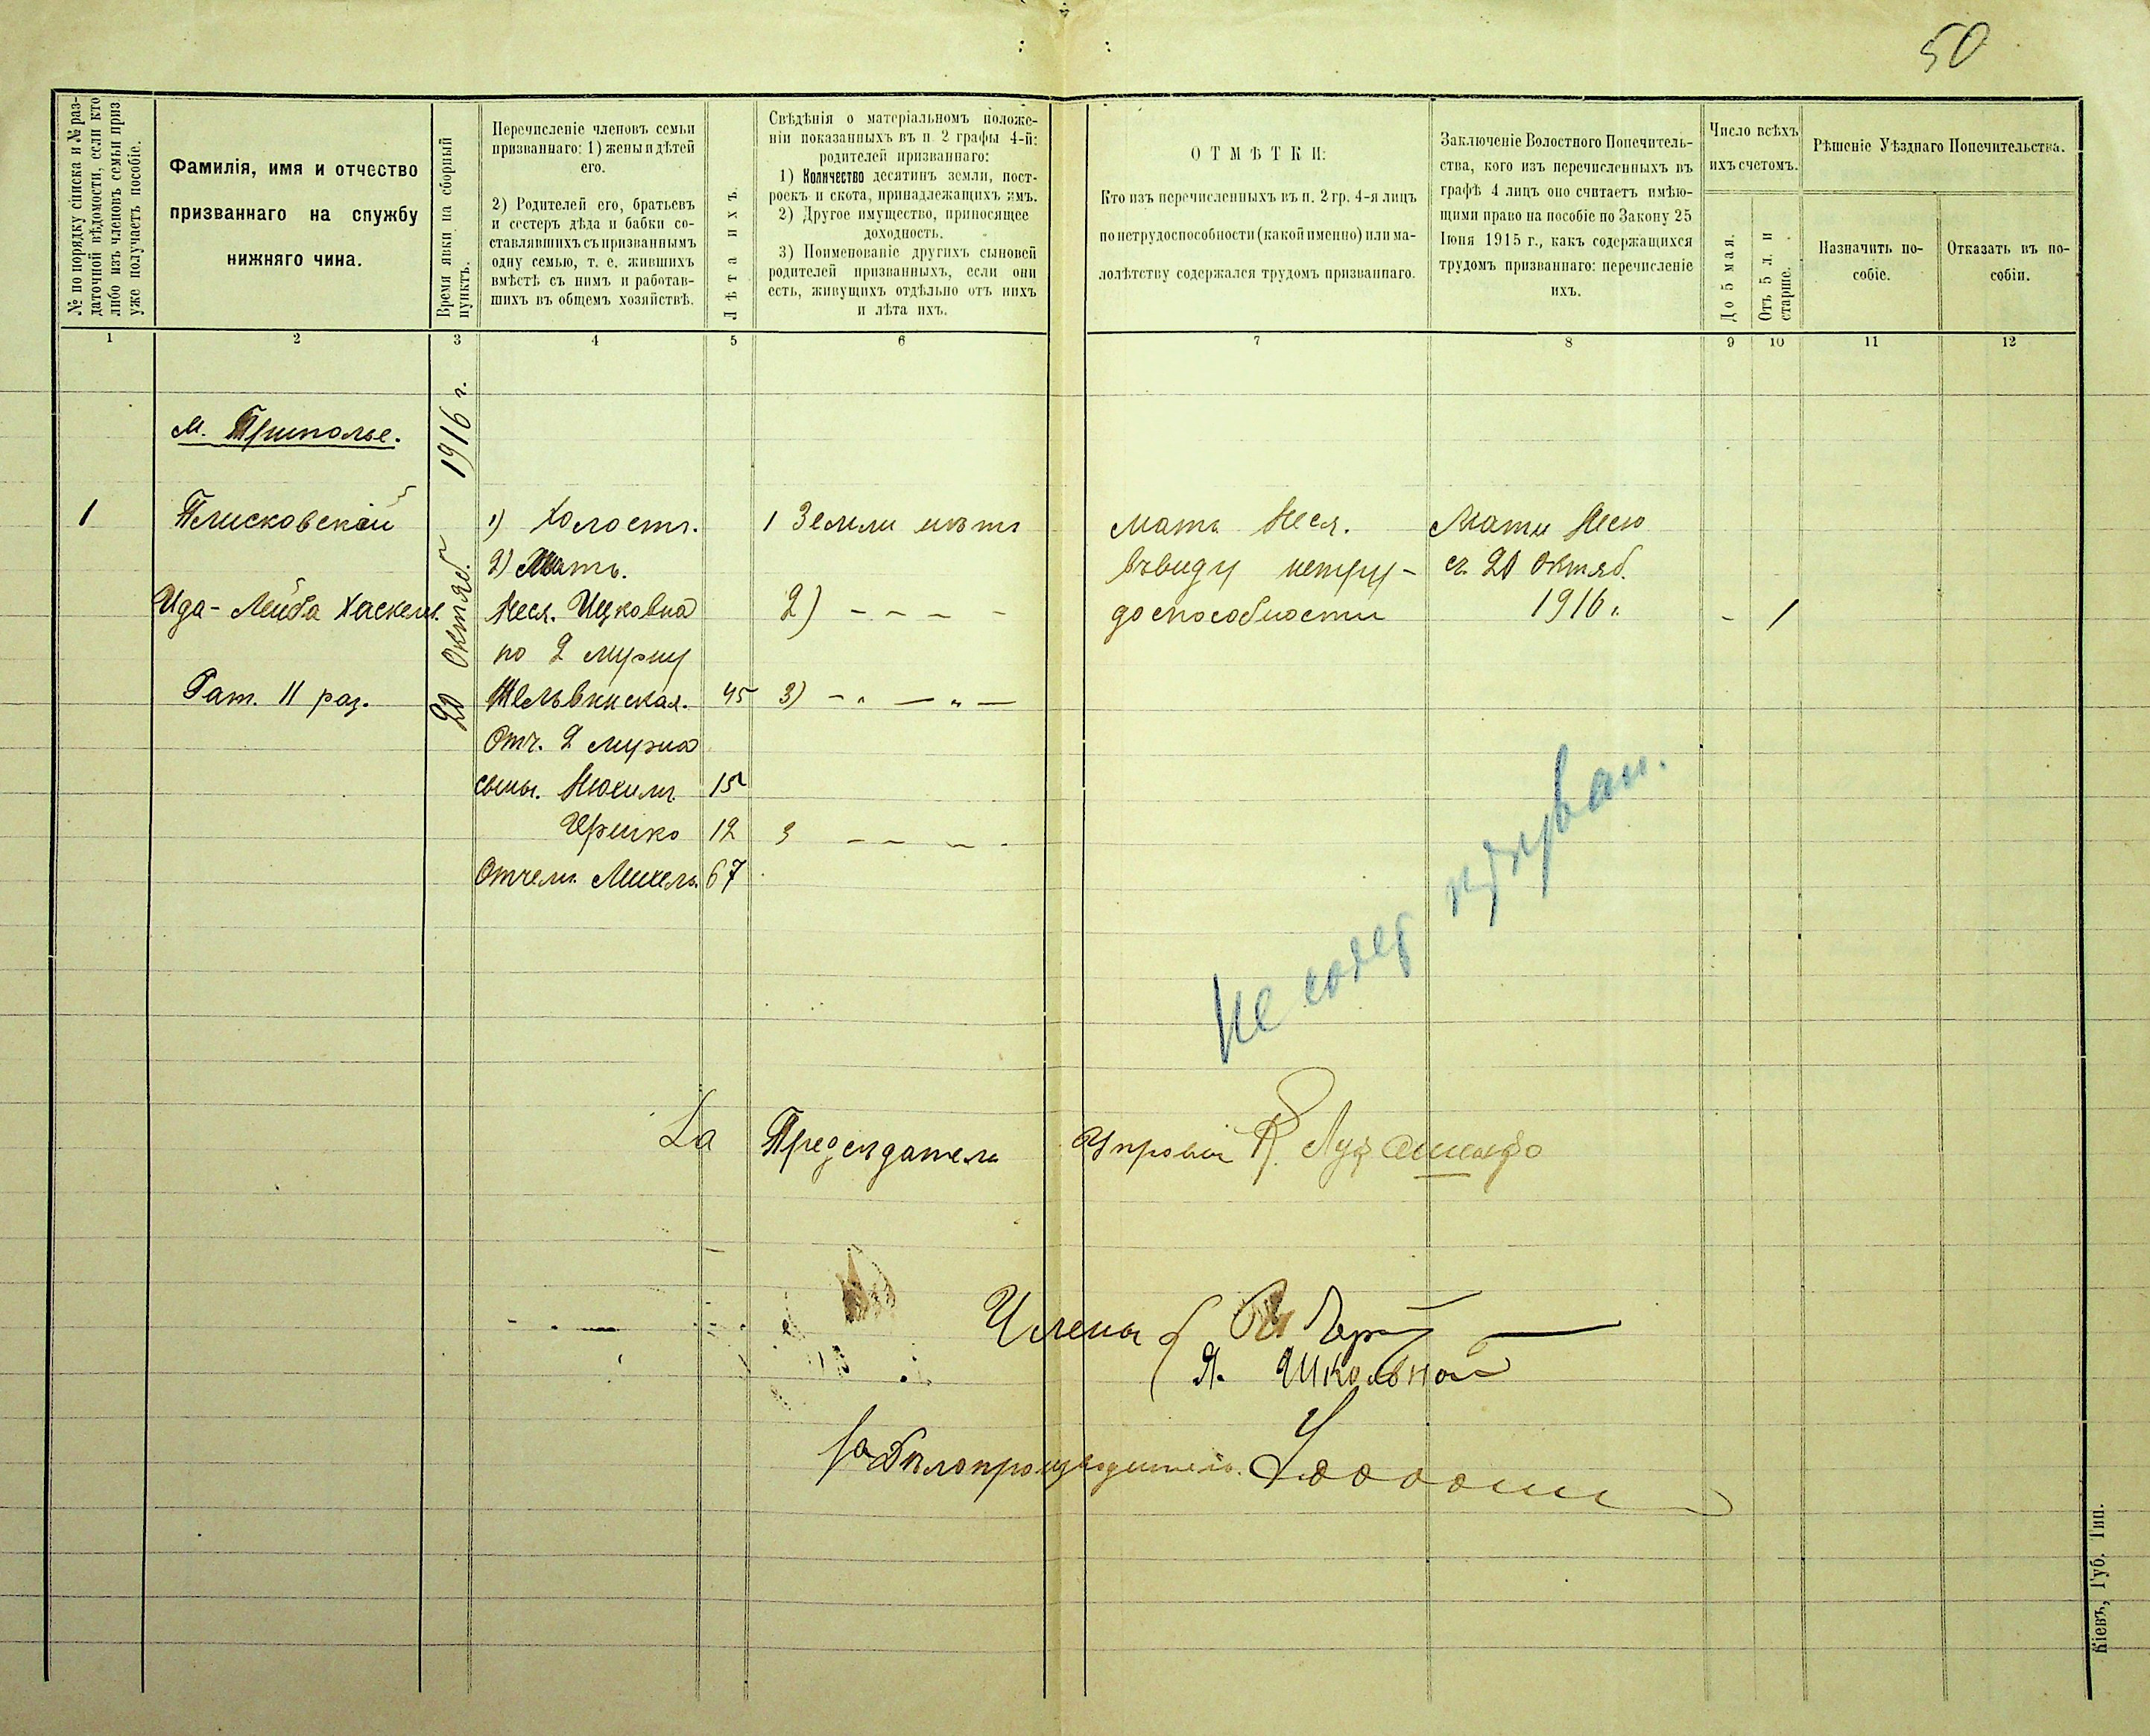 50
№ по порядку списка и № раз-
даточной вѣдомости, если кто
либо изъ членовъ семьи приз.
уже получаетъ пособіе.
Фамилія, имя и отчество
призваннаго на службу
нижняго чина.
Время явки на сборный
пунктъ.
Перечисленіе членовъ семьи
призваннаго: 1) жены и дѣтей
его.
2) Родителей его, братьевъ
и сестеръ дѣда и бабки со-
ставлявшихъ съ призваннымъ
одну семью, т. е. жившихъ
вмѣстѣ съ нимъ и работав-
шихъ въ общемъ хозяйствѣ.
Лѣта ихъ.
Свѣдѣнія о матеріальномъ положе-
ніи показанныхъ въ п. 2 графы 4-й:
родителей призваннаго:
1) Количество десятинъ земли, пост-
роекъ и скота, принадлежащихъ имъ.
2) Другое имущество, приносящее
доходность.
3) Поименованіе другихъ сыновей
родителей призванныхъ, если они
есть, живущихъ отдѣльно отъ нихъ
и лѣта ихъ.
ОТМѢТКИ:
Кто изъ перечисленныхъ въ п. 2 гр. 4-я лицъ
по нетрудоспособности (какой именно) или ма-
лолѣтству содержался трудомъ призваннаго.
Заключеніе Волостного Попечитель-
ства, кого изъ перечисленныхъ въ
графѣ 4 лицъ оно считаетъ имѣю-
щими право на пособіе по Закону 25
Іюня 1915 г., какъ содержащихся
трудомъ призваннаго: перечисленіе
ихъ.
Число всѣхъ
ихъ счетомъ.
До 5 мая.
Отъ 5 л. и
старше.
Рѣшеніе Уѣзднаго Попечительства.
Назначить по-
собіе.
Отказать въ по-
собіи.
1 2 3 4 5 6 7 8 9 10 11 12
м. Триполье.
1
Плисковскій
Ида-Лейба Хаскел.
Рат. II раз.
20 Октяб. 1916 г.
1) Холостъ.
2) Мать.
Неся. Ицковна
по 2 мужу
45
Отч. 2 мужа
сыны. 15
12
Отчемъ. Михель. 67
1 Земли нѣтъ
2) - - - -
3) - „ — „ —
3 - - - -
Мать Неся.
Ввиду нетру-
доспособности
Мати Несю
съ 20 Октяб.
1916 г.
- 1
Не содер
За Предсѣдатель Управы
Члены
Я. Школьной
За Дѣлопроизводитель.
Кіевъ, Губ. Тип.